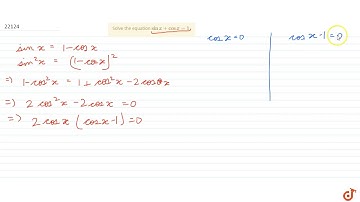 22124
Solve the equation sin x + cos x = 1.
sin x = 1-cos x
sin²x = (1-cos x)²
=) 1-cos²x = 1+cos²x - 2cos x
=) 2 cos²x - 2cos x = 0
=) 2 cos x (cos x-1) = 0
cos x = 0
cos x -1 = 0